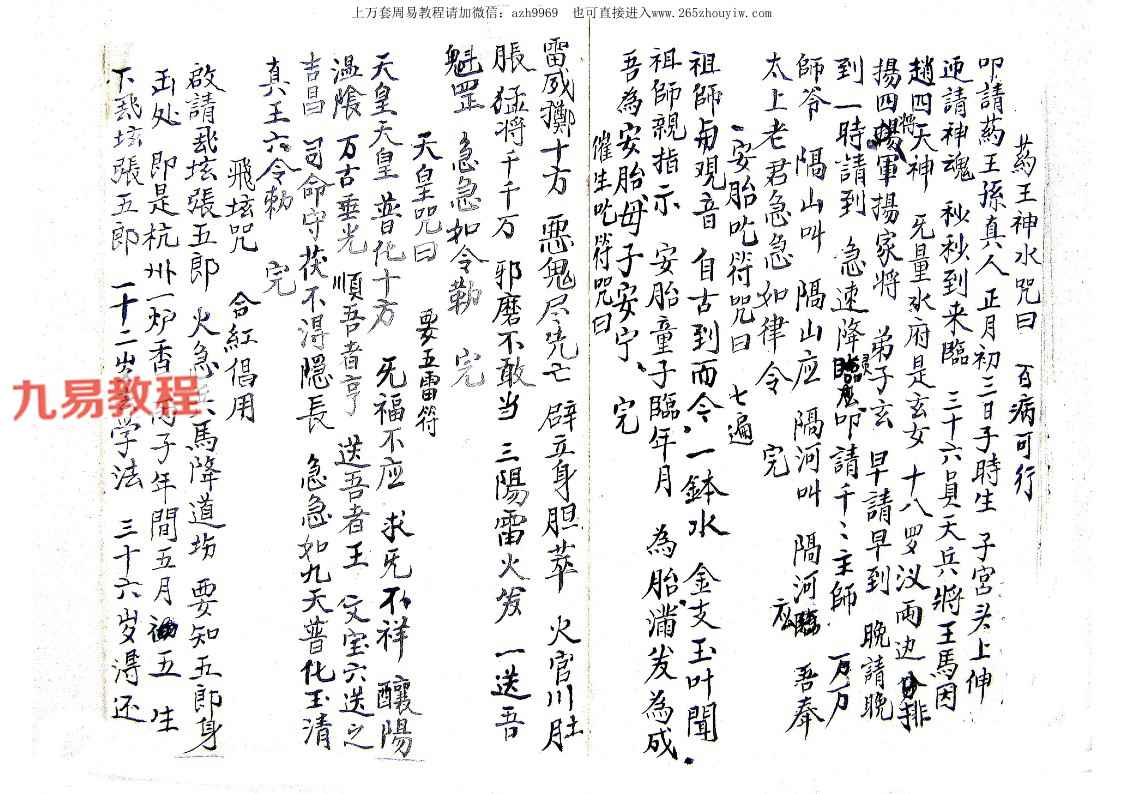 上万套周易教程请加微信：azh9969 也可直接进入www.265zhouyiw.com
葯王神水咒曰 百病可行
叩請葯王孫真人 正月初三日子時生 子宮头上伸
迎請神魂 秒秒到来臨 三十六員天兵將王馬因
趙四天神 旡量水府是玄女 十八罗汉両边排
揚四将軍揚家將 弟子玄 早請早到 晚請晚
到 一時請到 急速降臨 叩請千〻主師 万万
師爷 隔山叫 隔山应 隔河叫 隔河应 吾奉
太上老君急急如律令 完
安胎吃符咒曰 七遍
祖師与观音 自古到而令 一鉢水 金支玉叶聞
祖师親指示 安胎童子臨年月 為胎滿发為成
吾為安胎母子安宁 完
催生吃符咒曰
雷威擲十方 悪鬼尽先亡 辟立身胆萃 火官川肚
脹 猛将千千万 邪磨不敢当 三陽雷火发 一送吾
魁罡 急急如令勅 完
天皇咒曰 要五雷符
天皇天皇 普化十方 旡福不应 求旡不祥 釀陽
温隂 万古垂光 順吾者亨 送吾者王 文宝六送之
吉昌 司命守茯不淂隐長 急急如九天普化玉清
真王六令勅 完
飛垓咒 合紅倡用
啟請飛垓張五郎 火急兵馬降道坊 要知五郎身
出处 即是杭州一炉香 子年間五月 五 生
下飛垓張五郎 一十二岁 学法 三十六岁淂还
九易教程